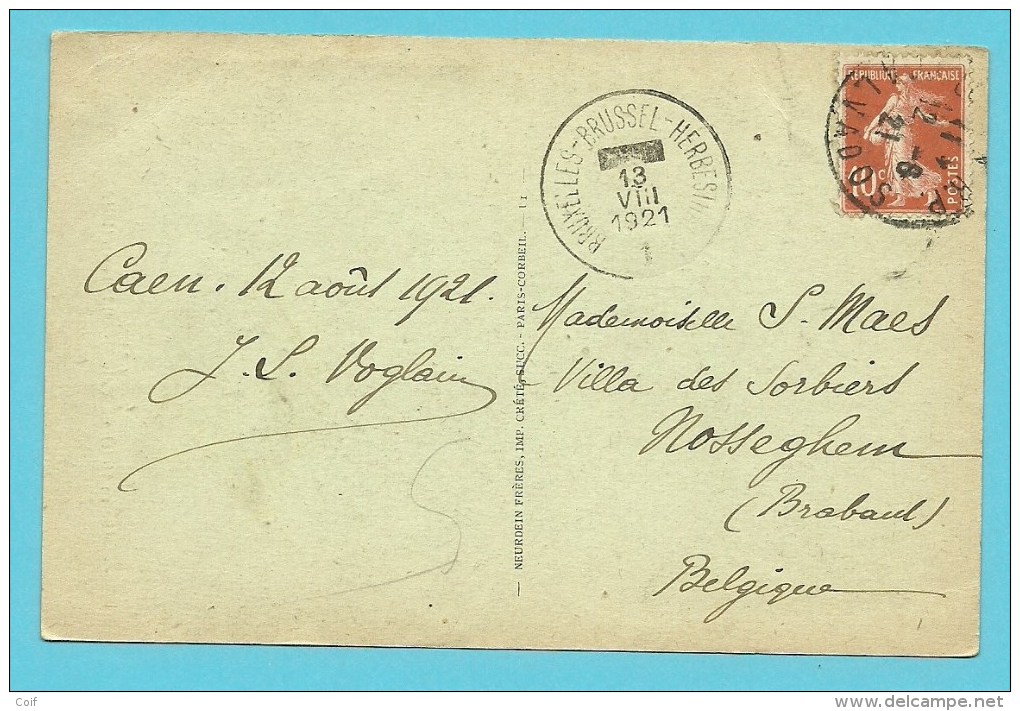 Caen. 12 août 1921.
J. S. Voglain
NEURDEIN FRÈRES, IMP. CRÉTÉ, SUCC. - PARIS-CORBEIL.
BRUXELLES-BRUSSEL-HERBES
13
VIII
1921
1
RÉPUBLIQUE FRANÇAISE
10c
POSTES
CALVADOS
Mademoiselle S. Maes
Villa des Sorbiers
Nosseghem
(Brabant)
Belgique
Coif
www.delcampe.net